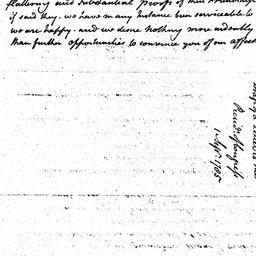 flattering and substantial proofs of their
if said they, we have in any Instance been serviceable to
we are happy. and we desire nothing more ardently
than further opportunities to convince you of our affect
Read. Congress
1 Sepr. 1785